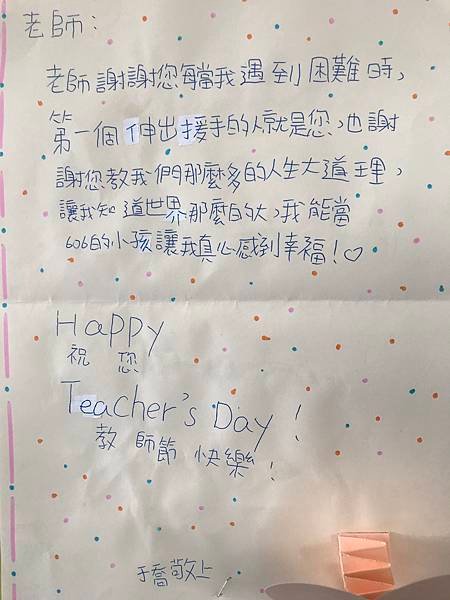 老師：
老師謝謝您每當我遇到困難時，
第一個伸出援手的人就是您，也謝
謝您教我們那麼多的人生大道理，
讓我知道世界那麼的大，我能當
606的小孩讓我真心感到幸福！♡
Happy
祝您
Teacher's Day！
教師節快樂！
于喬敬上